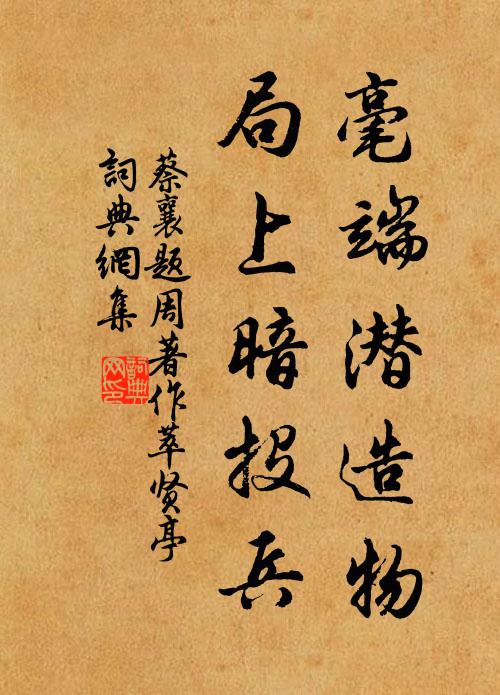 毫端潜造物
局上暗投兵
蔡襄题周著作萃贤亭
詞典網集
詞典
网印